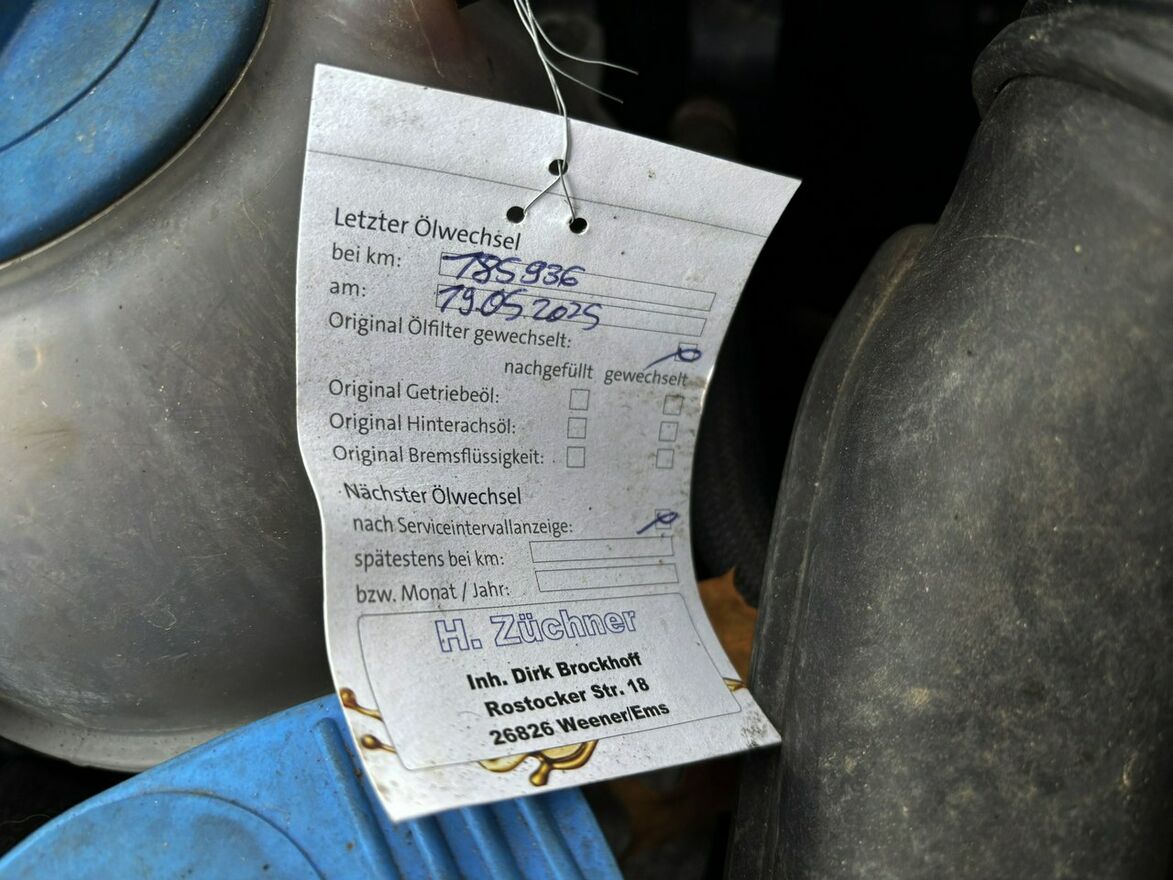 Letzter Ölwechsel
bei km: 185936
am: 19.05.2025
Original Ölfilter gewechselt:
nachgefüllt gewechselt
Original Getriebeöl:
Original Hinterachsöl:
Original Bremsflüssigkeit:
Nächster Ölwechsel
nach Serviceintervallanzeige:
spätestens bei km:
bzw. Monat / Jahr:
H. Züchner
Inh. Dirk Brockhoff
Rostocker Str. 18
26826 Weener/Ems